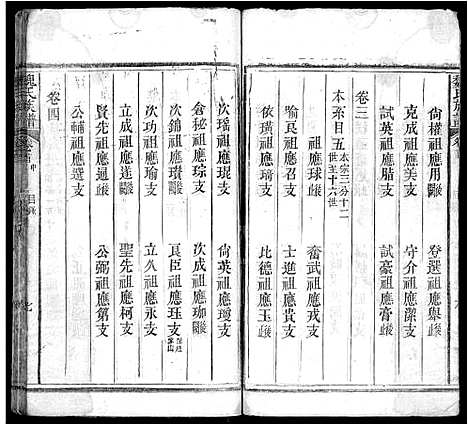 尙權祖應用巖
登選祖應舉巖
克成祖應美支
守介祖應潔支
試英祖應賠支
試豪祖應膏巖
卷三
本系目五
本宗三分十二
世至十六世
祖應球巖
奮武祖應戎支
祖應召巖
士進祖應貴支
依璜祖應琦支
比德祖應玉巖
次瑤祖應琨支
尙英祖應璋支
倉秘祖應琮支
次成祖應珈巖
次錦祖應瓚巖
良臣祖應珏支
次功祖應瑜支
立久祖應永支
立成祖應達巖
聖先祖應柯支
賢先祖應通巖
公弼祖應第支
公輔祖應選支
卷四
魏氏族譜
卷首
目錄